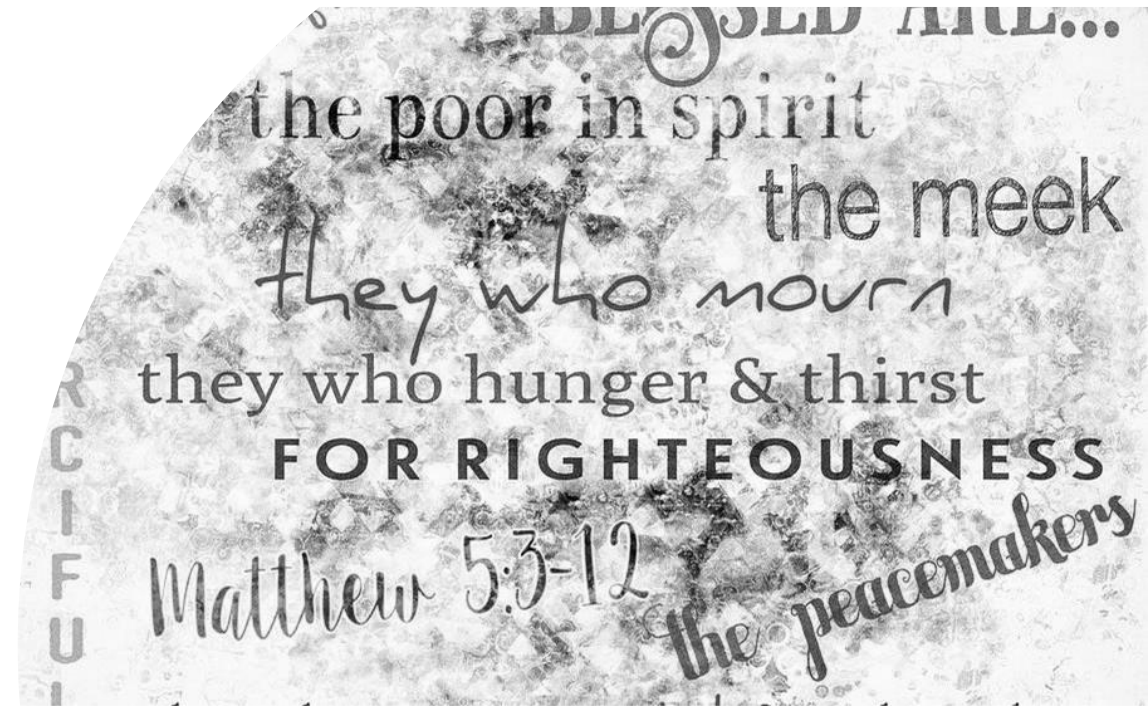 BLESSED ARE...
the poor in spirit
the meek
they who mourn
they who hunger & thirst
FOR RIGHTEOUSNESS
the peacemakers
Matthew 5:3-12
RCIFUL